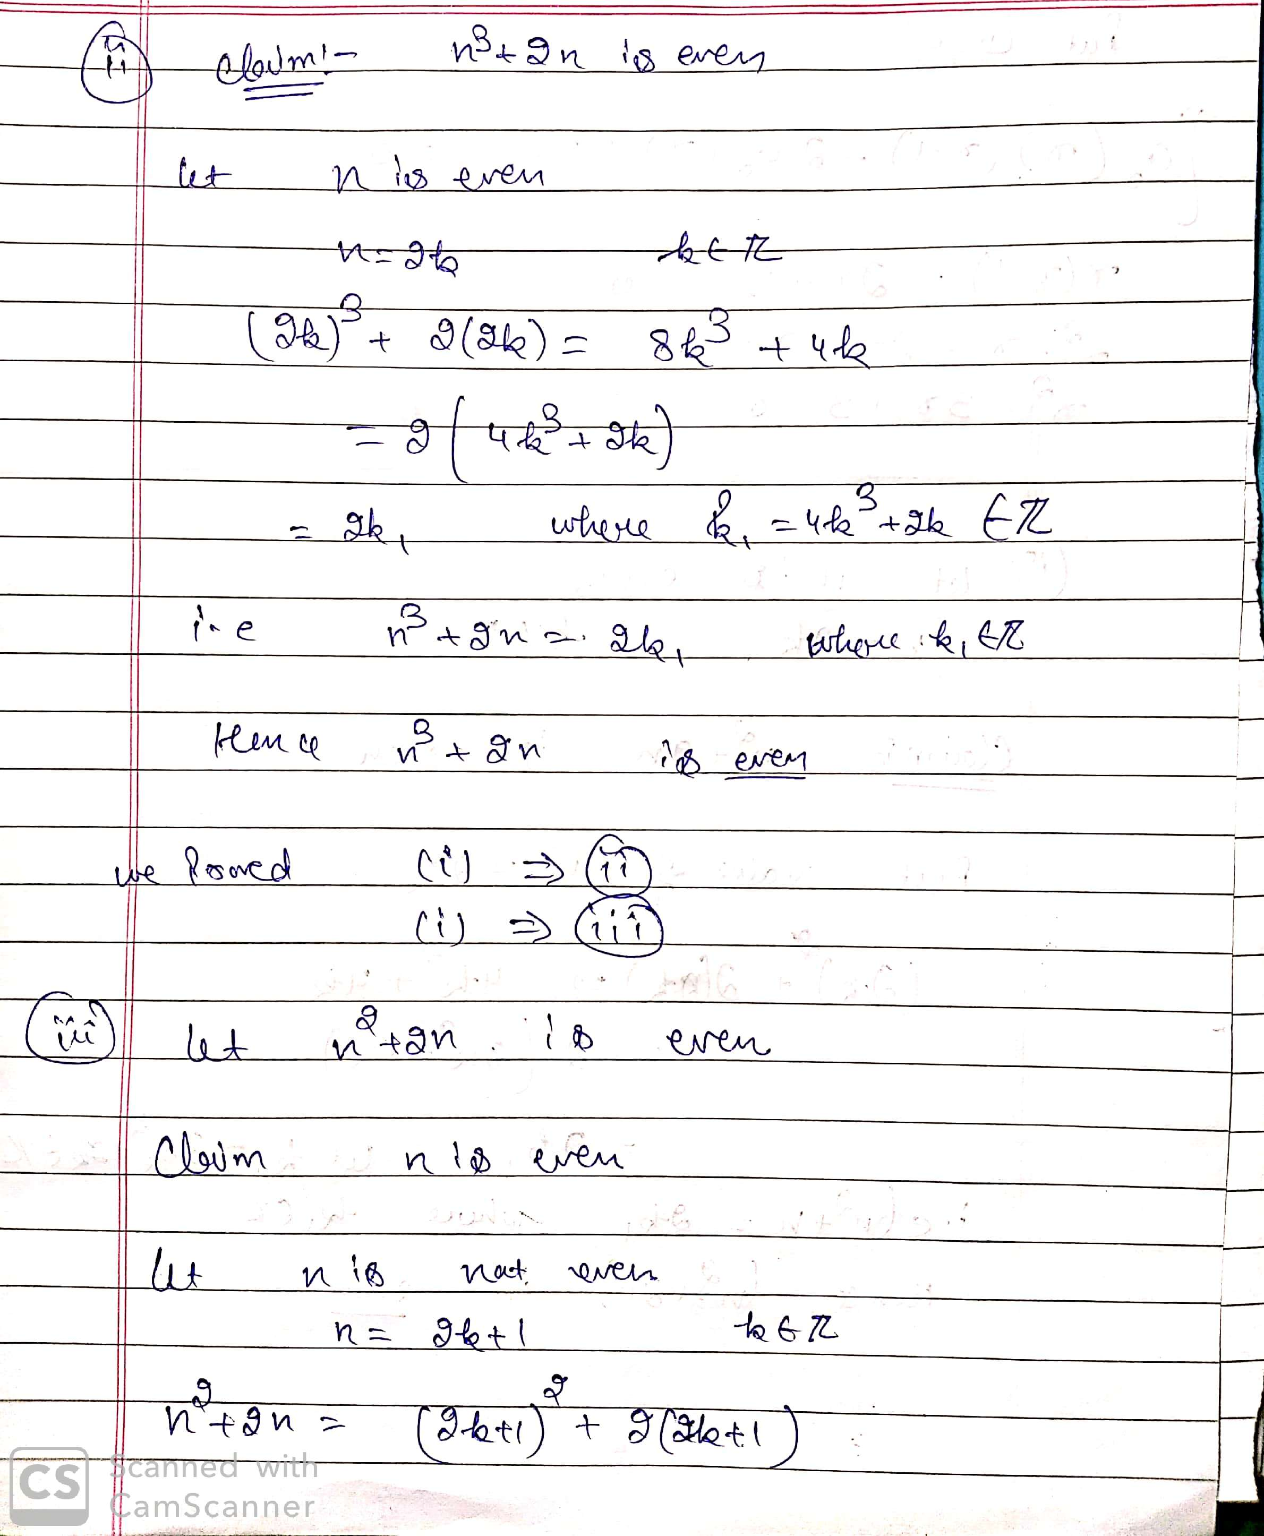 ii Claim:- n³+2n is even
let n is even
n=2k k∈ℤ
(2k)³ + 2(2k) = 8k³ + 4k
= 2(4k³+2k)
= 2k₁ where k₁ = 4k³+2k ∈ℤ
i.e n³+2n = 2k₁ where k₁∈ℤ
Hence n³+2n is even
we Proved (i) ⇒ (ii)
(i) ⇒ (iii)
iii let n²+2n is even
Claim n is even
let n is not even
n= 2k+1 k∈ℤ
n²+2n = (2k+1)² + 2(2k+1)
CS Scanned with
CamScanner